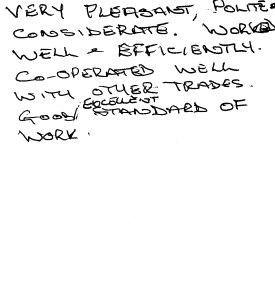 VERY PLEASANT, POLITE &
CONSIDERATE. WORKED
WELL & EFFICIENTLY.
CO-OPERATED WELL
WITH OTHER TRADES.
EXCELLENT
GOOD/ STANDARD OF
WORK.